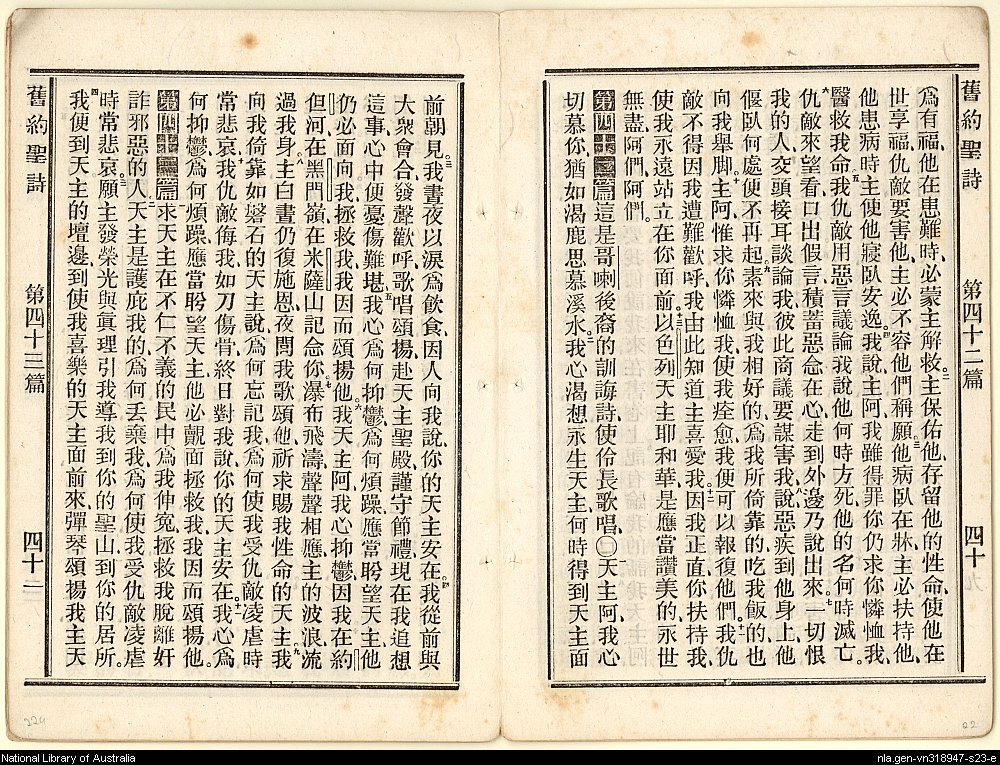 舊約聖詩 第四十二篇 四十
爲有福、他在患難時、必蒙主解救。二主保佑他、存留他的性命、使他在
世享福、仇敵要害他、主必不容他們稱願。三他病臥在牀、主必扶持他、
他患病時、主使他寢臥安逸。四我說、主阿、我雖得罪你、仍求你憐恤我、
醫救我命。五我仇敵用惡言議論我、說他何時方死、他的名何時滅亡。
六仇敵來望看、口出假言、積蓄惡念在心、走到外邊、乃說出來。七一切恨
我的人、交頭接耳談論我、彼此商議、要謀害我。八說惡疾到他身上、他
偃臥何處、便不再起。九素來與我相好的、爲我所倚靠的、吃我飯的、也
向我舉脚。十主阿、惟求你憐恤我、使我痊愈、我便可以報復他們。十一我仇
敵不得因我遭難歡呼、我由此知道主喜愛我。十二因我正直、你扶持我、
使我永遠站立在你面前。十三以色列天主耶和華、是應當讚美的、永世
無盡、阿們阿們。
第四十二篇 這是哥喇後裔的訓誨詩、使伶長歌唱、〇一天主阿、我心
切慕你、猶如渴鹿思慕溪水。二我心渴想永生天主、何時得到天主面
前朝見。三我晝夜以淚爲飲食、因人向我說、你的天主安在。四我從前與
大衆會合、發聲歡呼、歌唱頌揚、赴天主聖殿、謹守節禮、現在我追想
這事、心中便憂傷難堪。五我心爲何抑鬱、爲何煩躁、應當盼望天主、他
仍必面向我、拯救我、我因而頌揚他。六我天主阿、我心抑鬱、因我在約
但河、在黑門嶺、在米薩山、記念你。七瀑布飛濤、聲聲相應、主的波浪、流
過我身。八主白晝仍復施恩、夜間我歌頌他、祈求賜我性命的天主。九我
向我倚靠如磐石的天主說、爲何忘記我、爲何使我受仇敵凌虐、時
常悲哀。十我仇敵侮我、如刀傷骨、終日對我說、你的天主安在。十一我心爲
何抑鬱、爲何煩躁、應當盼望天主、他必覿面拯救我、我因而頌揚他。
第四十三篇 一求天主在不仁不義的民中、爲我伸寃、拯救我脫離奸
詐邪惡的人。二天主是護庇我的、爲何丢棄我、爲何使我受仇敵凌虐、
時常悲哀。三願主發榮光與眞理、引我導我、到你的聖山、到你的居所。
四我便到天主的壇邊、到使我喜樂的天主面前來、彈琴頌揚我主天
舊約聖詩 第四十三篇 四十二
224
22
National Library of Australia
nla.gen-vn318947-s23-e